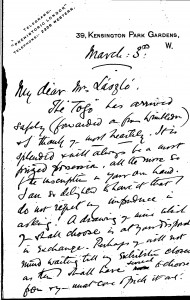 39, KENSINGTON PARK GARDENS,
W.
March 3rd
My dear Mr László
The Togo has arrived
safely (forwarded on from Wimbledon)
& thank you most heartily. It is
splendid & will always be a most
prized possession, all the more so
the inscription in your own hand.
I am so delighted to have it that I
do not regret my impudence in
asking! A drawing of mine which
you shall choose is at your disposal
in exchange. Perhaps you will not
mind waiting till my exhibition closes
as then I shall have more to choose
for you must come & pick it out.